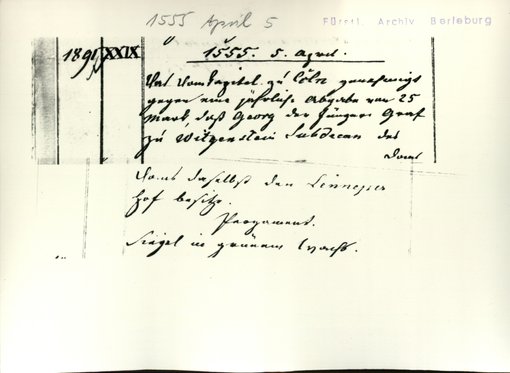 1555 April 5
Fürstl. Archiv Berleburg
1891 XXIX
1555. 5. April.
Das Domkapitel zu Cöln genehmigt
gegen eine jährliche Abgabe von 25
Mark, daß Georg der Jüngere Graf
zu Witgenstein Subdecan des
Doms
Doms daselbst den Lenneper
Hof besitze.
Pergament.
Siegel in grünem Wachs.